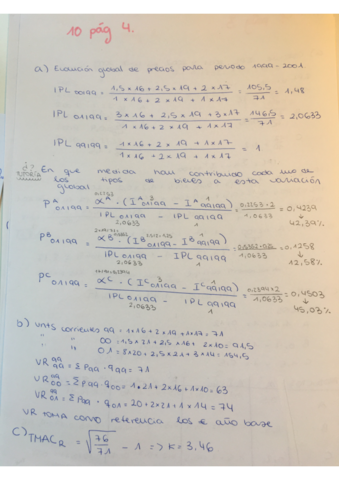 10 pág 4.
a) Evolución global de precios para periodo 1999-2001
IPL 01/99 = 1,5 x 16 + 2,5 x 19 + 2 x 17 / 1 x 16 + 2 x 19 + 1 x 17 = 105,5 / 71 = 1,48
IPL 01/99 = 3 x 16 + 2,5 x 19 + 3 x 17 / 1 x 16 + 2 x 19 + 1 x 17 = 146,5 / 71 = 2,0633
IPL 99/99 = 1 x 16 + 2 x 19 + 1 x 17 / 1 x 16 + 2 x 19 + 1 x 17 = 1
En que medida han contribuido cada uno de
los tipos de bienes a esta variación
global
P^A 01/99 = α^A · (I^A 01/99 - I^A 99/99) / IPL 01/99 - IPL 99/99 = 0,2253 x 2 / 1,0633 = 0,4239
2,0633 1 42,39%
P^B 01/99 = α^B · (I^B 01/99 - I^B 99/99) / IPL 01/99 - IPL 99/99 = / 1,0633 = 0,1258
2,0633 1 12,58%
P^C 01/99 = α^C · (I^C 01/99 - I^C 99/99) / IPL 01/99 - IPL 99/99 = 0,2394 x 2 / 1,0633 = 0,4503
2,0633 1 45,03%
b) units corrientes 99 = 1 x 16 + 2 x 19 + 1 x 17 = 71
" " 00 = 1,5 x 21 + 2,5 x 16 + 2 x 10 = 91,5
" " 01 = 3 x 20 + 2,5 x 21 + 3 x 14 = 154,5
VR 99 99 = Σ P99 · q99 = 71
VR 99 00 = Σ P99 · q00 = 1 x 21 + 2 x 16 + 1 x 10 = 63
VR 99 01 = Σ P99 · q01 = 20 + 2 x 21 + 1 x 14 = 76
VR toma como referencia los € año base
c) TMAC R = √ 76 / 71 - 1 => k = 3,46